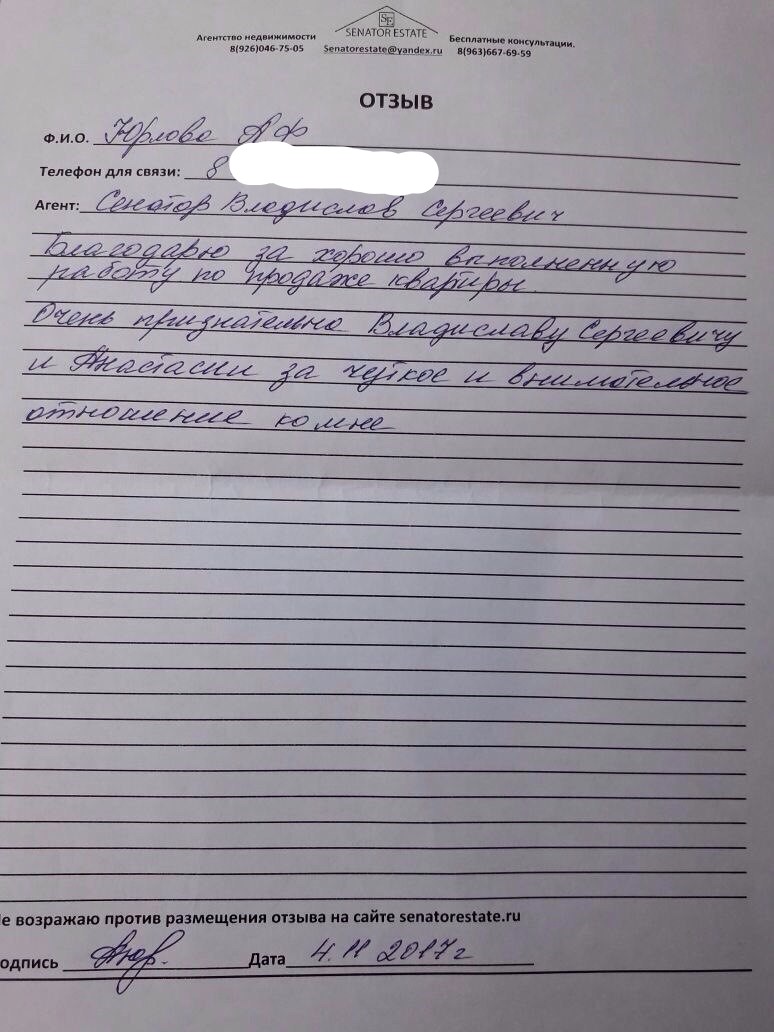 SE
SENATOR ESTATE
Агентство недвижимости
8(926)046-75-05
Senatorestate@yandex.ru
Бесплатные консультации.
8(963)667-69-59
ОТЗЫВ
Ф.И.О. Юрлова А Ф
Телефон для связи: 8
Агент: Сенатор Владислав Сергеевич
Благодарю за хорошо выполненную
работу по продаже квартиры.
Очень признательна Владиславу Сергеевичу
и Анастасии за чуткое и внимательное
отношение ко мне
Не возражаю против размещения отзыва на сайте senatorestate.ru
одпись Аюр. Дата 4. 11 2017 г